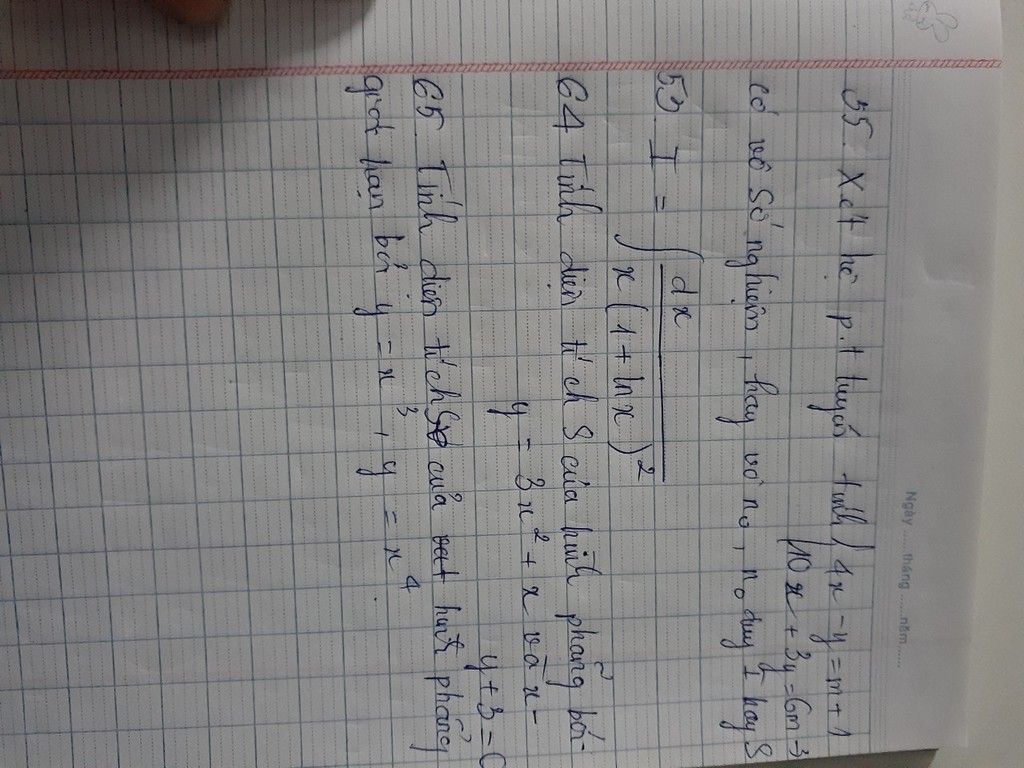 Ngày ..... tháng .....năm......
55. Xét hệ p.t tuyến tính { 4x - y = m + 1
10x + 3y = 6m - 3
có vô số nghiệm, hay vô no, no duy 1 hay S
53 I = ∫ dx
x(1 + lnx)²
64 Tính diện tích S của hình phẳng bởi
y = 3x² + x và x -
y + 3 = 0
65 Tính diện tích của hình phẳng
giới hạn bởi y = x³, y = x⁴